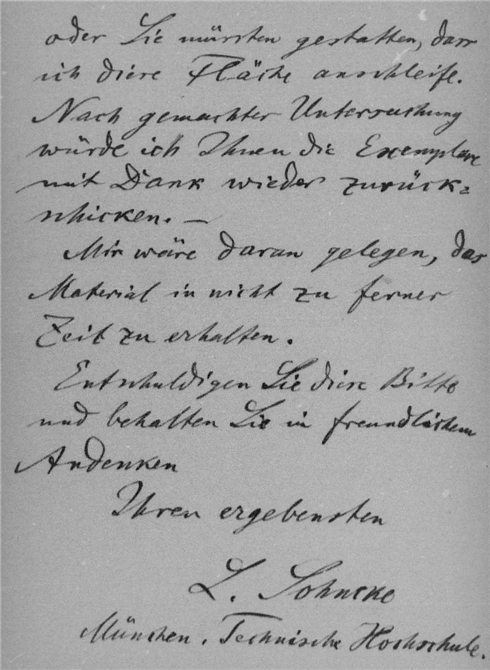 oder Sie müssten gestatten, dass
ich diese Fläche anschleife.
Nach gemachter Untersuchung
würde ich Ihnen die Exemplare
mit Dank wieder zurück=
schicken. —
Mir wäre daran gelegen, das
Material in nicht zu ferner
Zeit zu erhalten.
Entschuldigen Sie diese Bitte
und behalten Sie in freundlichem
Andenken
Ihren ergebensten
L. Sohncke
München. Technische Hochschule.